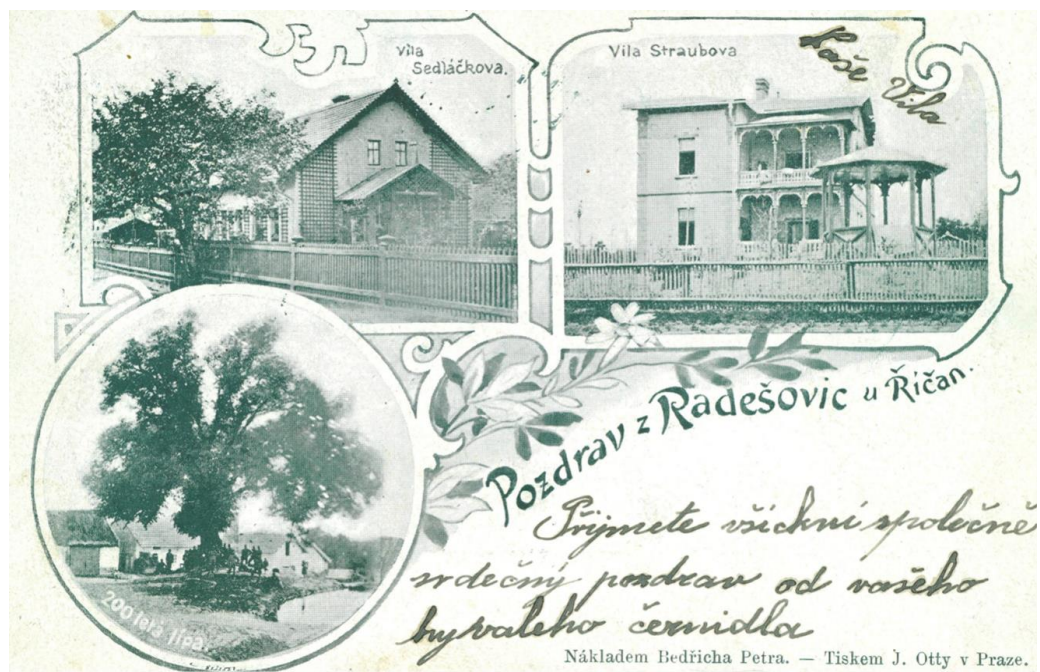 Vila
Sedláčkova.
Vila Straubova
Vila
200 letá lípa.
Pozdrav z Radešovic u Říčan.
Přijmete všickni společně
srdečný pozdrav od vašeho
byvalého černidla
Nákladem Bedřicha Petra. — Tiskem J. Otty v Praze.